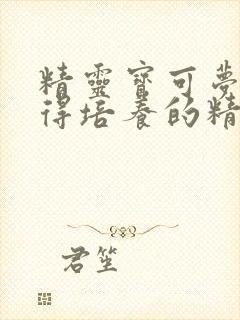 精靈寶可夢
得培養的精
君笙